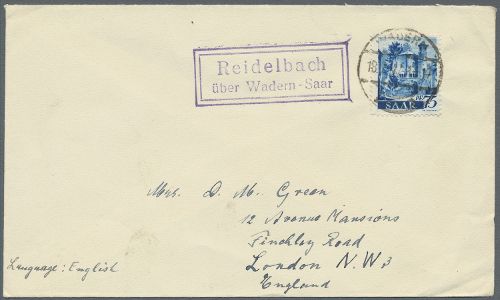 Reidelbach
über Wadern-Saar
WADERN
SAAR 75
Mrs. D. M. Green
12 Avenue Mansions
Finchley Road
London N.W3
England
Language: English